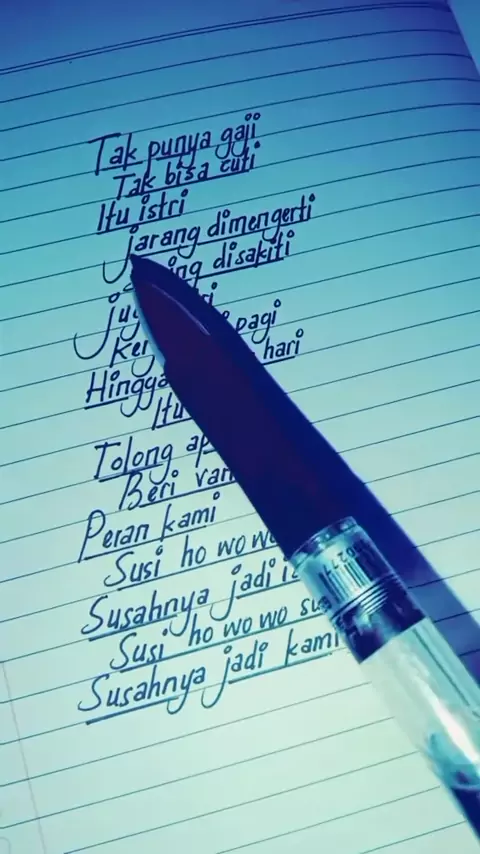 Tak punya gaji
Tak bisa cuti
Itu istri
Jarang dimengerti
disakiti
pagi
hari
Hingga
Tolong
Beri
Peran kami
Susi ho wo wo
Susahnya jadi
Susi ho wo wo
Susahnya jadi kami